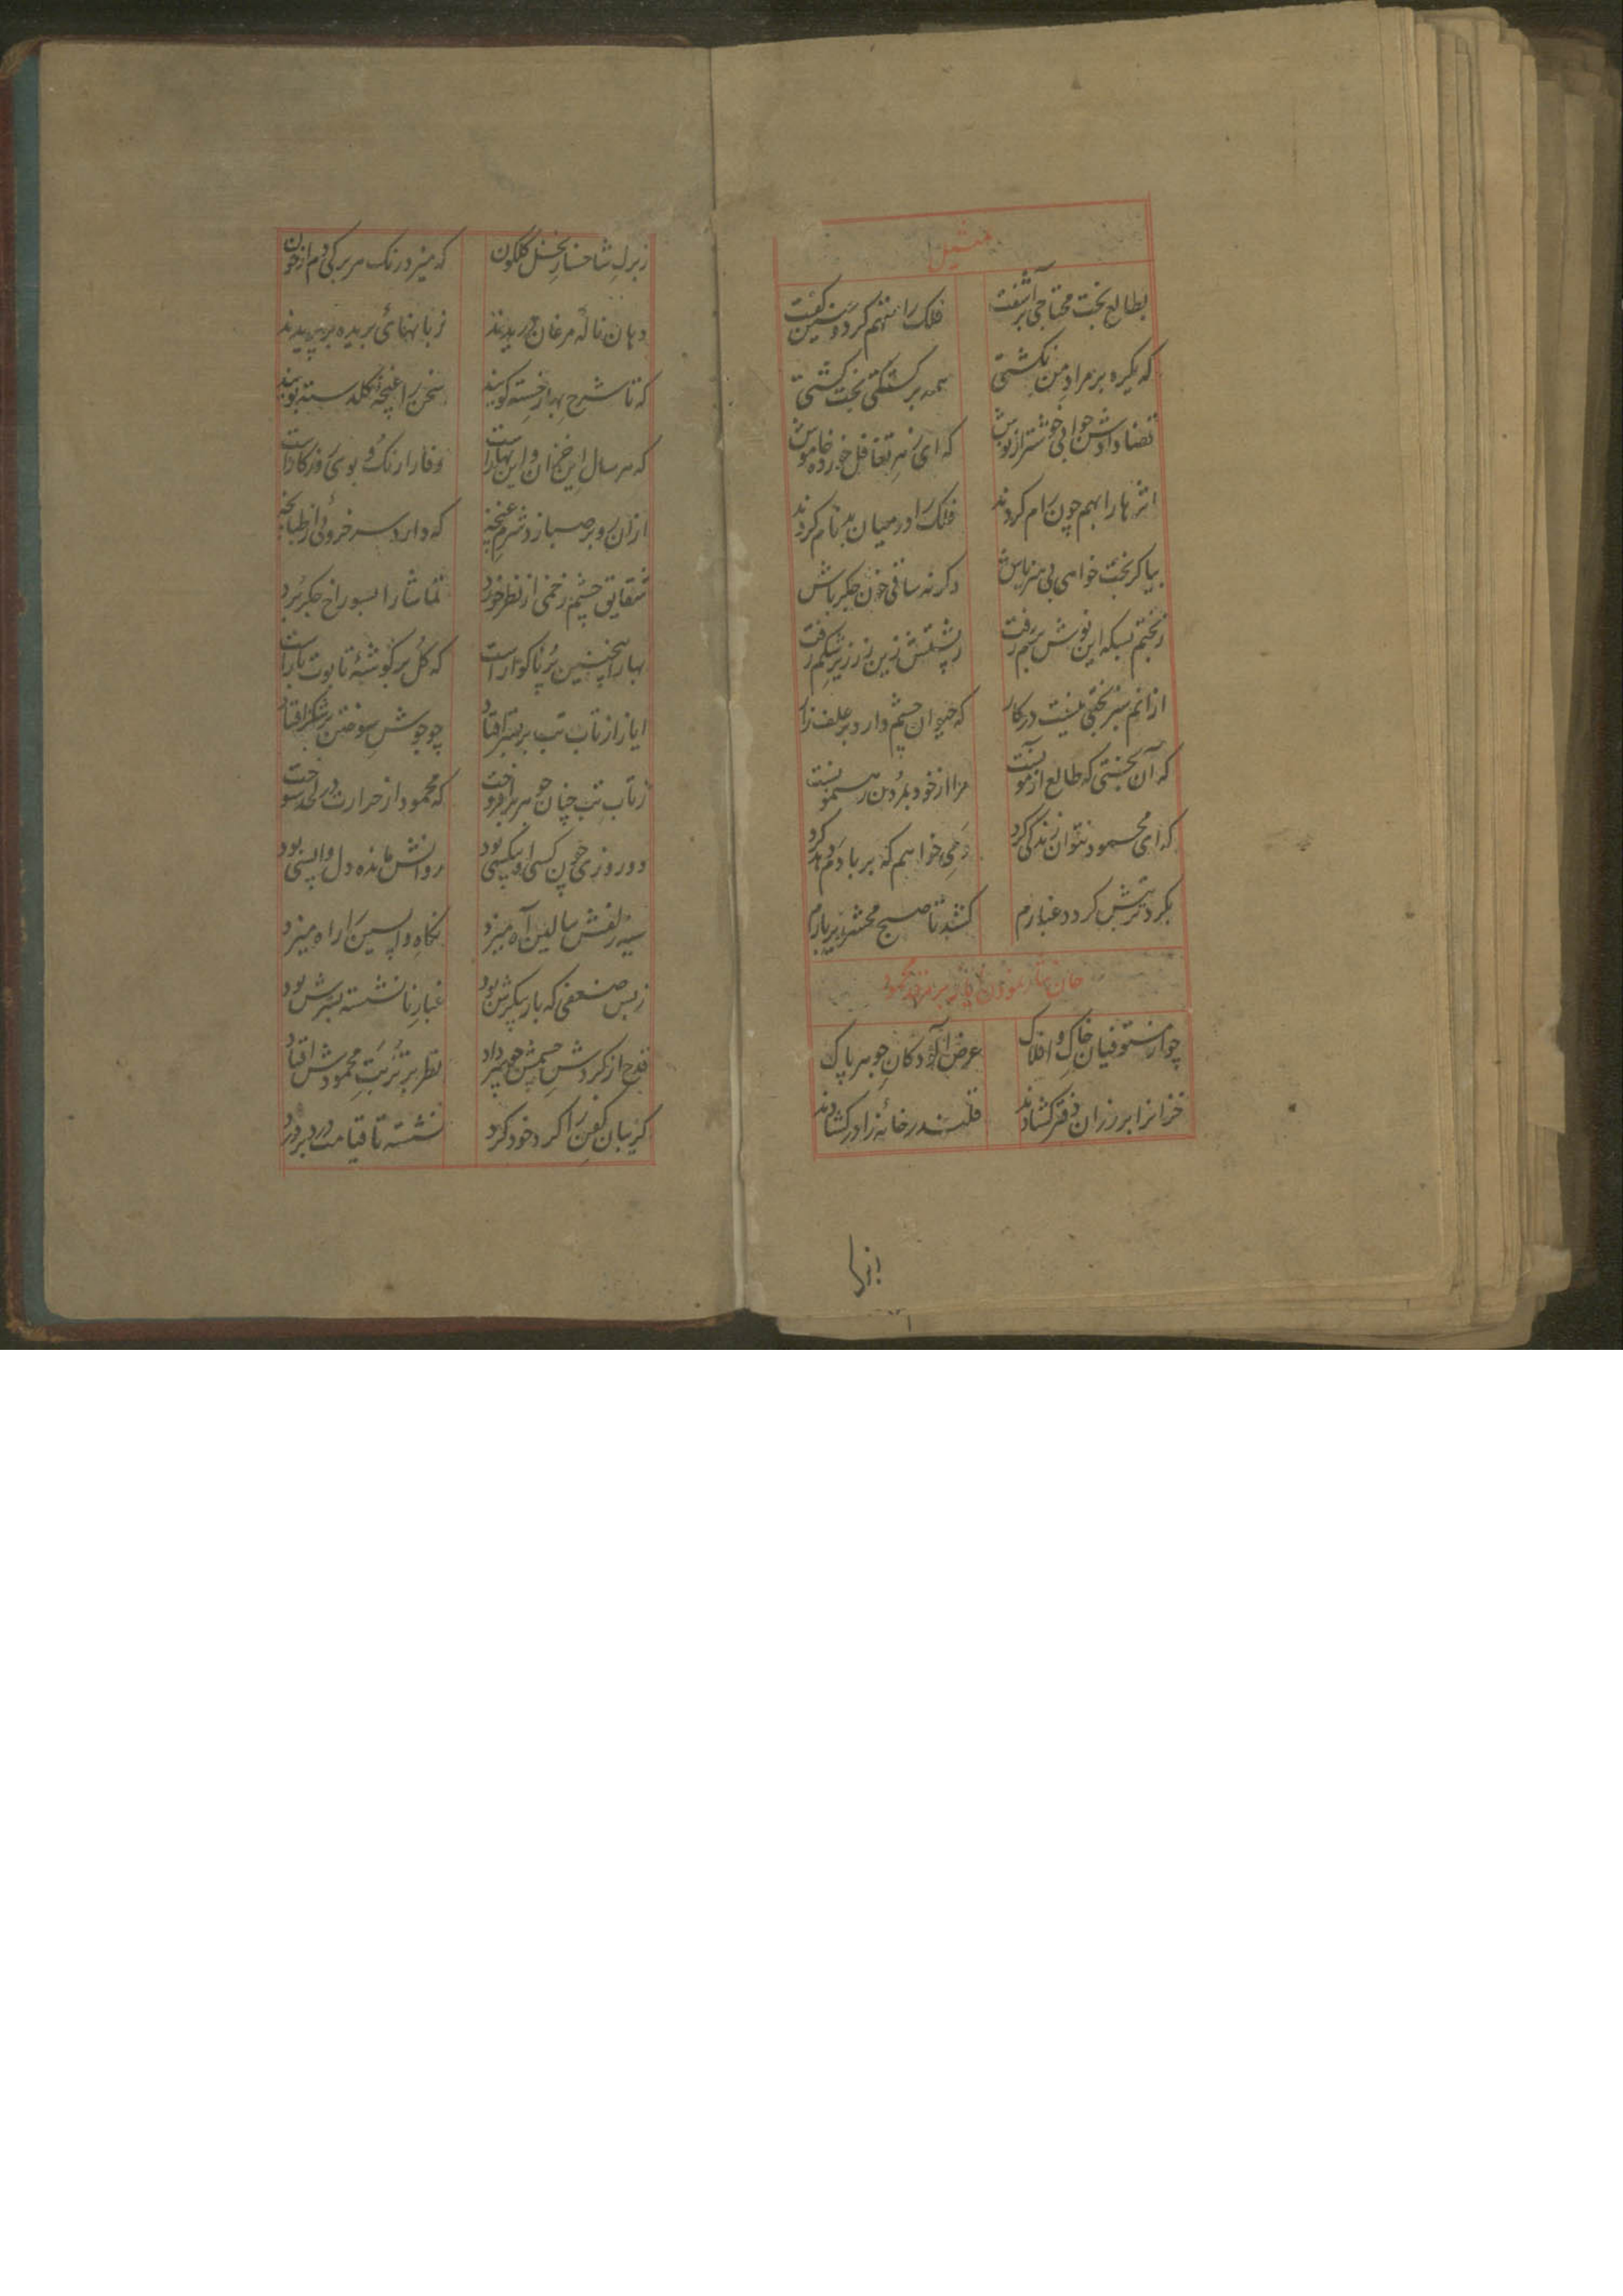 تمثیل
بطالع بخت محتاجی برآشفت فلک را متهم کرد و سخن گفت
که یکره بر مراد من نگشتی همه برگشتگی بخت گشتی
قضا دادش جوابی خوشتر از نوش که ای زهر تغافل خورده خاموش
اثرها را بهم چون رام کردند فلک را در میان بدنام کردند
بیا گر بخت خواهی بی هنر باش دگر نه ساقی خون جگر باش
ز بختم بسکه این نوش رفت ز پشتش زین زر زیر شکم رفت
ازانم سبز بختی نیست در کار که حیوان چشم دارد بر علف زار
که آن بختی که طالع آزمونست مرا از خود بمردن رهنمونست
که ای محمود نتوان زندگی کرد می خواهم که بر بادم دهد گرد
بگرد تربتش گردد غبارم کشد تا صبح محشر زیر بارم
جان نثار نمودن ایاز بر مرقد محمود
چو از مستوفیان خاک و افلاک عرض آلود کان جوهر پاک
خزانرا بر رزان دفتر گشادند قلندر خانه زا در گشادند
ز برگ شاخسار نخل گلگون که میزد رنگ هر برگی دم از خون
دهان ناله مرغان دریدند زبانهای بریده پر بریدند
که تا شرح بهار خسته گویند سخن را غنچه گلدسته بویند
که هر سال این خزان و این بهار است وفا را رنگ و بوی روزگار است
ازان رو بر صبا زد شرم غنچه که دارد سرخروئی از طپانچه
شقایق چشم زخمی از نظر خورد تماشا را بسوراخ جگر برد
بهار اینچنین پر ناگوار است که گل بر گوشه تابوت بار است
ایاز از تاب تب بر بستر افتاد چو جوش سوختن بر شکر افتاد
ز تاب تب چنان جوهر برافروخت که محمود از حرارت در لحد سوخت
دو روزی چون کسی او بیکسی بود روانش مانده دل واپسی بود
سیه زلفش ببالین آه میزد نگاه واپسین را راه میزد
ز بس ضعفی که بار پیکرش بود غبار نانشسته بسترش بود
قدح از گردش چشمش چو میداد نظر بر تربت محمودش افتاد
گریبان کفن را گرد خود کرد نشسته تا قیامت درد بر درد